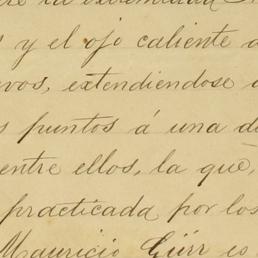 la extremidad
y el ojo caliente
vos, extendiendose
puntos á una
entre ellos, la que,
practicada por los
Mauricio Gürr es